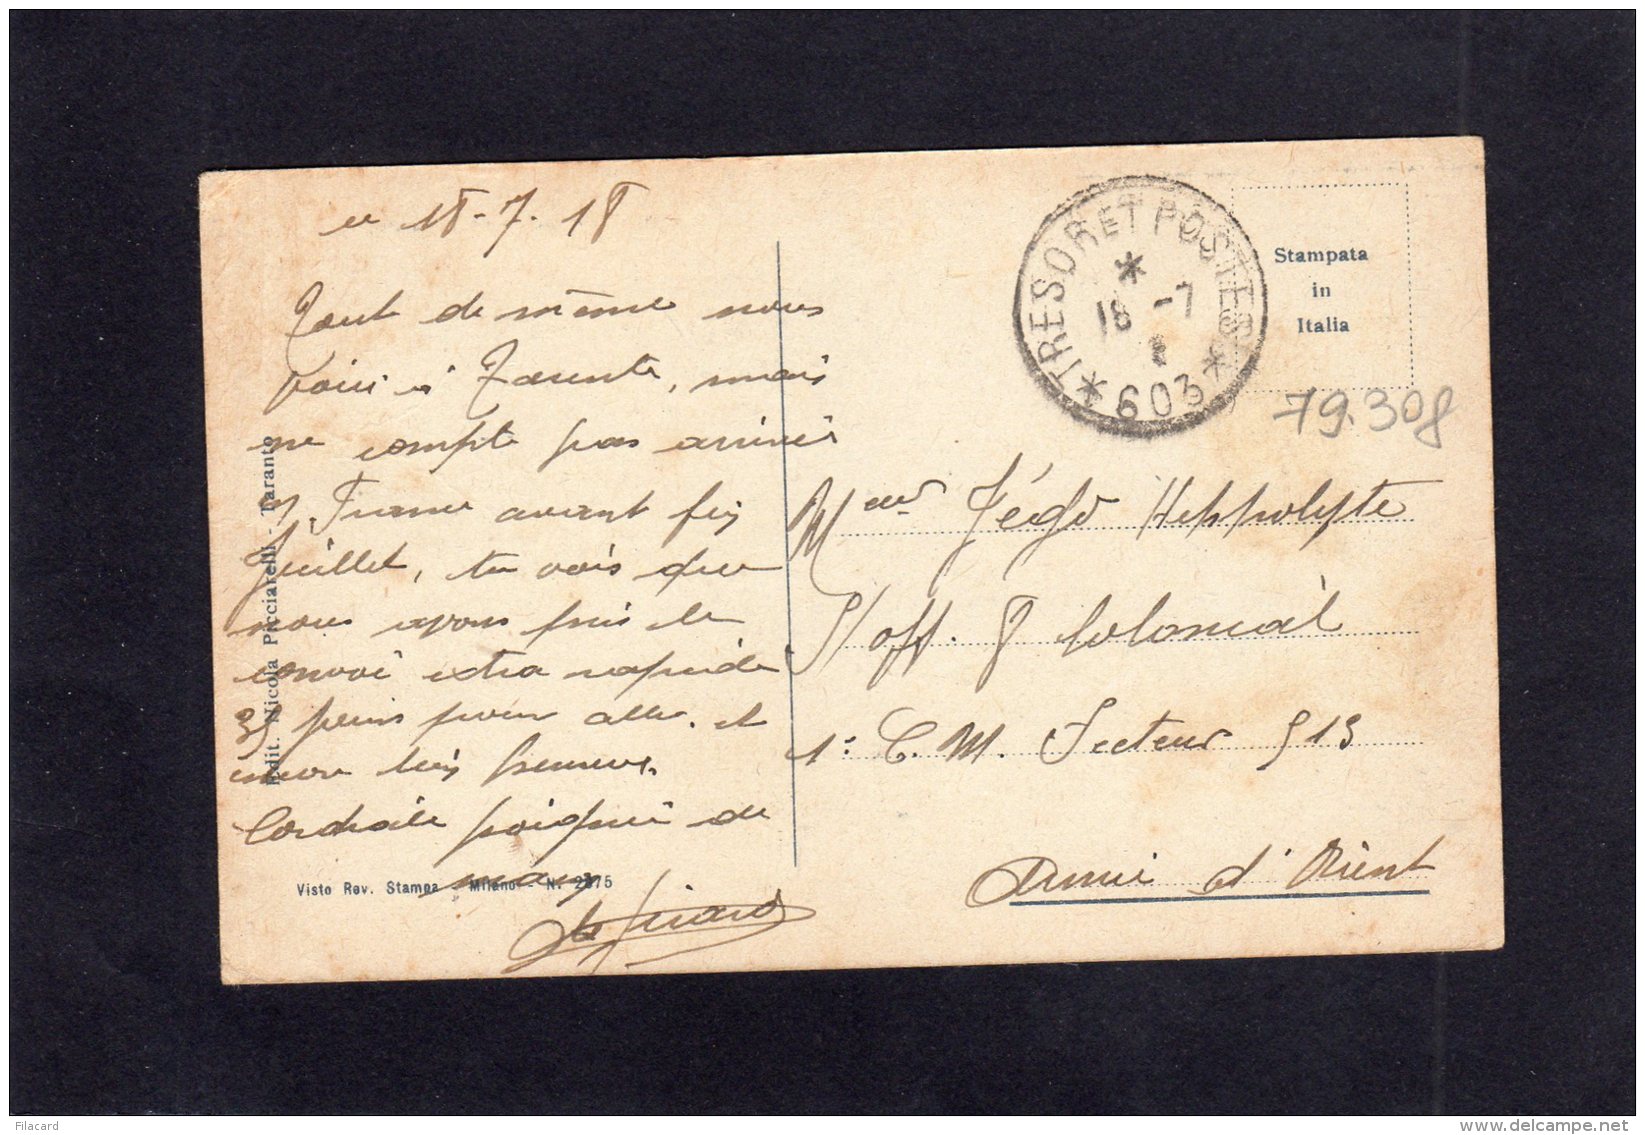 18-7-18
Tout de même nous
voici à Tarente, mais
ne compte pas arriver
en France avant fin
Juillet, tu vois que
nous avons pris le
convoi extra rapide
jours pour aller. et
encore très heureux.
Cordiale poignée de
main
Edit. Nicola Picciarelli, Taranto
Visto Rev. Stampa Milano - N. 2375
TRESOR ET POSTES
18 -7
* 603 *
Stampata
in
Italia
79.308
Meur Jégo Hippolyte
S/off. 8 Colonial
1e C. M. Secteur 513
Armée d'Orient
Filacard
www.delcampe.net